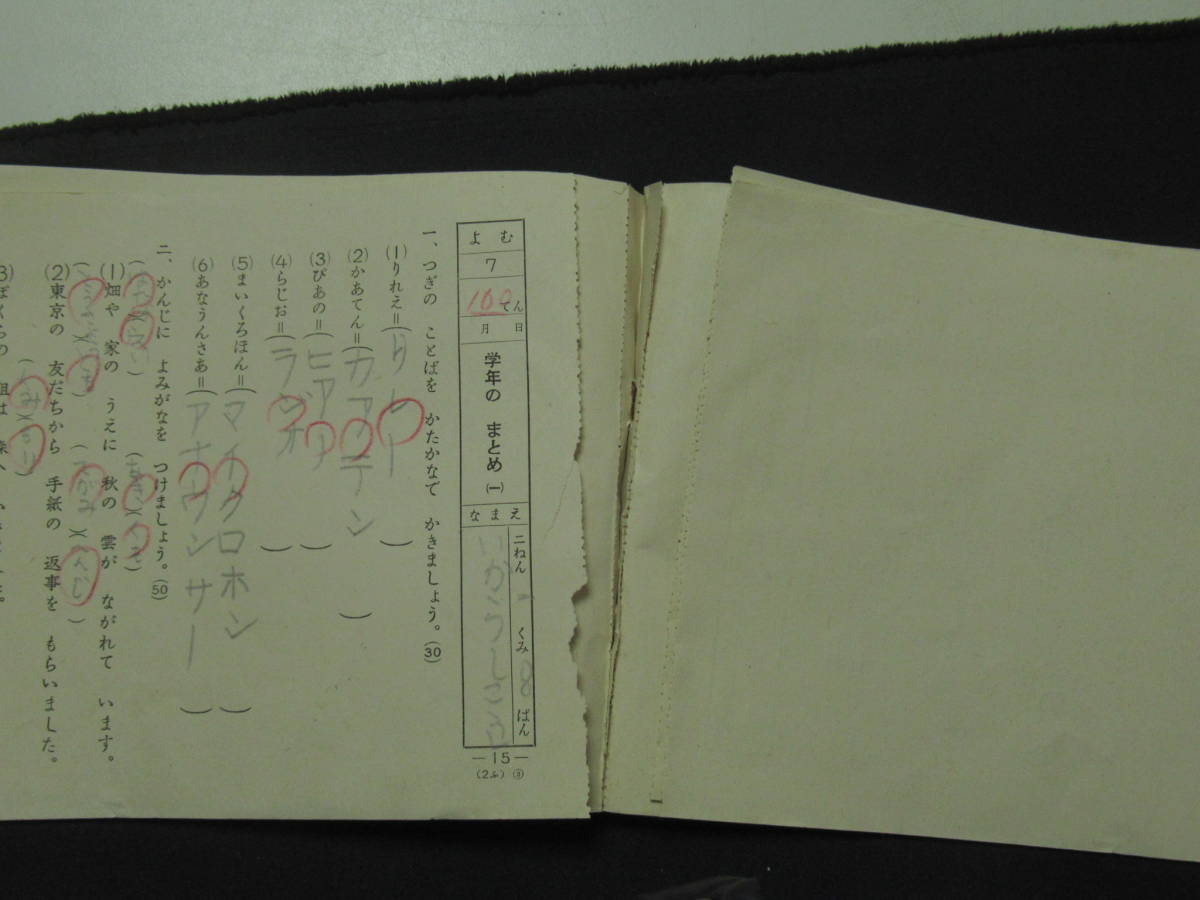 よむ
7
100てん
月 日
学年の まとめ (一)
なまえ
二ねん くみ 8 ばん
—15—
(2ふ) ③
一、つぎの ことばを かたかなで かきましょう。(30)
(1)りれえ=(リレー)
(2)かあてん=(カアテン)
(3)ぴあの=(ピアノ)
(4)らじお=(ラジオ)
(5)まいくろほん=(マイクロホン)
(6)あなうんさあ=(アナウンサー)
二、かんじに よみがなを つけましょう。(50)
(1)畑や 家の うえに 秋の 雲が ながれて います。
(てがみ)(へんじ)
(2)東京の 友だちから 手紙の 返事を もらいました。